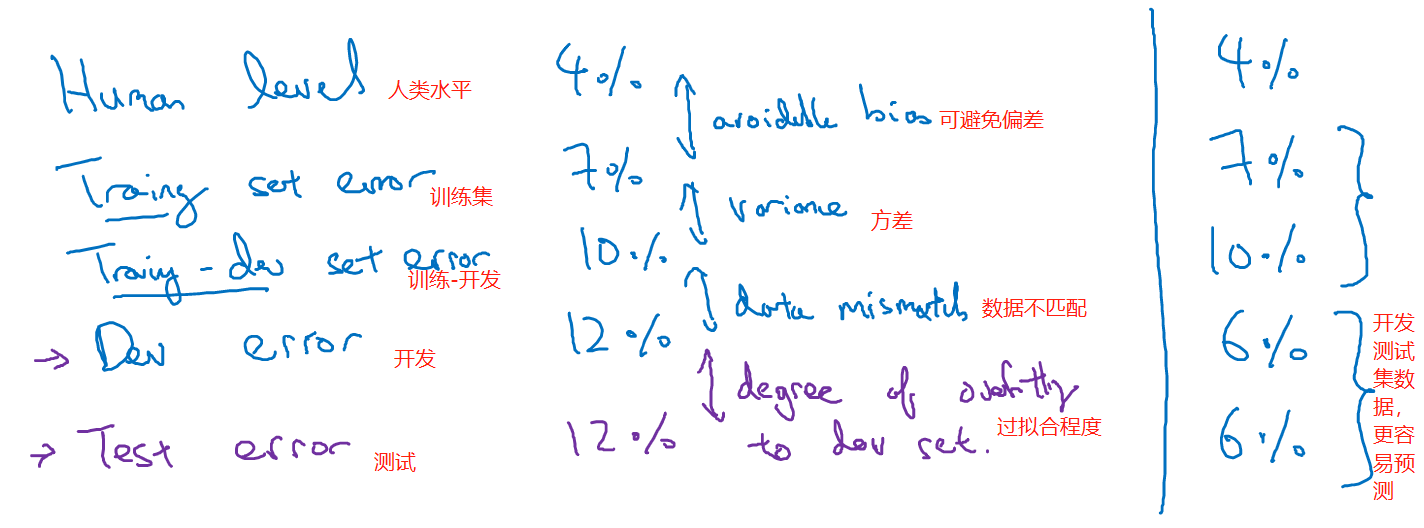 Human level 人类水平 4% 4%
avoidable bias 可避免偏差
Traing set error 训练集 7% 7%
variance 方差
Traing-dev set error 训练-开发 10% 10%
data mismatch 数据不匹配
→ Dev error 开发 12% 6%
degree of overfitting 过拟合程度
to dev set.
→ Test error 测试 12% 6%
开发
测试
集数
据，
更容
易预
测